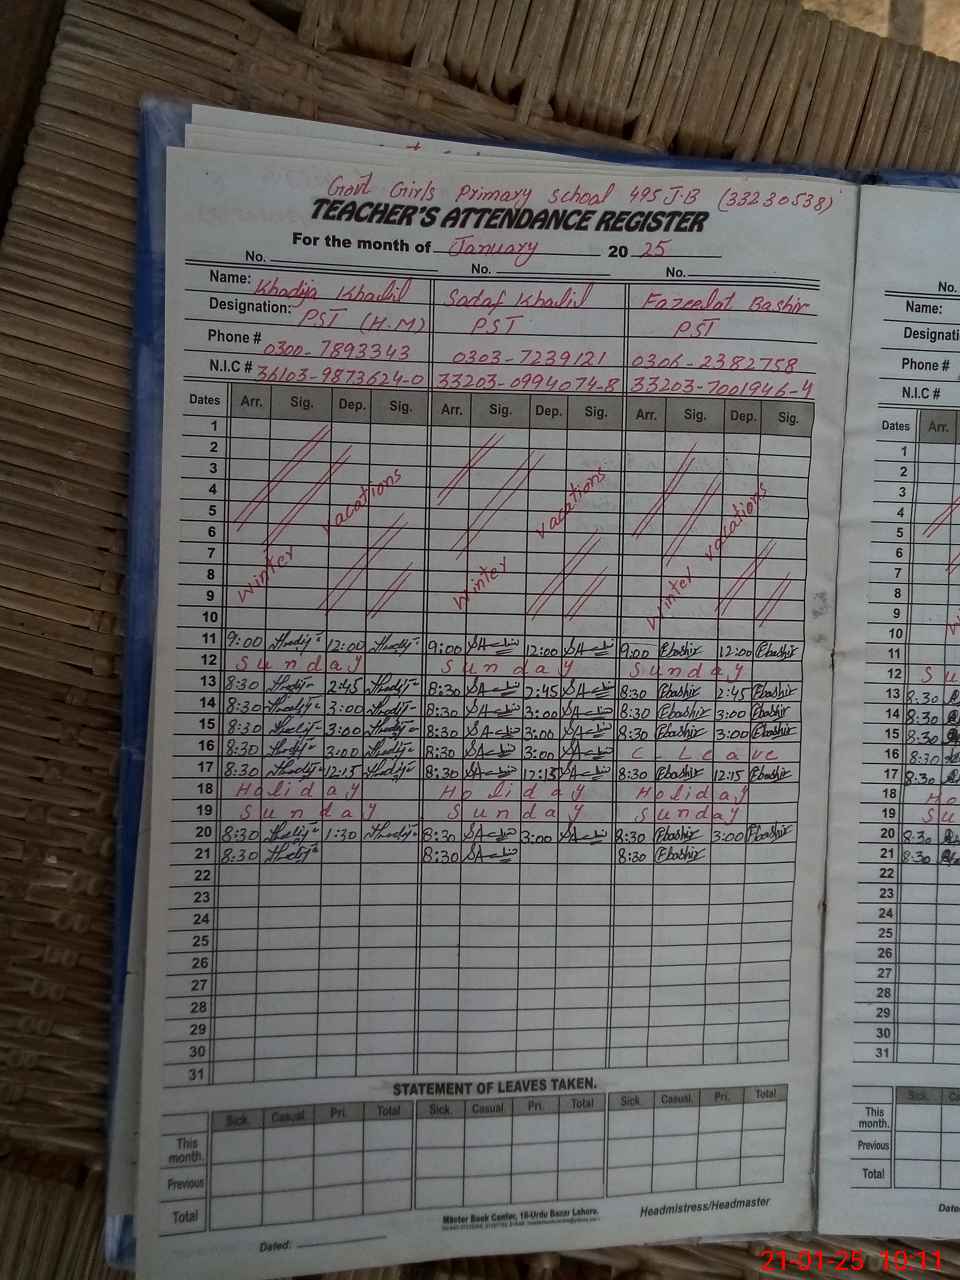 Govt Girls Primary School 495 J.B (33230538)
TEACHER'S ATTENDANCE REGISTER
For the month of January 2025
No. No. No.
Name: Khadija Khalil Sadaf Khalil Fazeelat Bashir
Designation: PST (H.M) PST PST
Phone # 0300-7893343 0303-7239121 0306-2382758
N.I.C # 36103-9873624-0 33203-0994074-8 33203-7001946-4
Dates Arr. Sig. Dep. Sig. Arr. Sig. Dep. Sig. Arr. Sig. Dep. Sig.
1
2
3
4
5
6
7
8
9
10
winter vacations winter vacations winter vacations
11 9:00 12:00 9:00 12:00 9:00 Ebashir 12:00 Ebashir
12 Sunday Sunday Sunday
13 8:30 2:45 8:30 2:45 8:30 Ebashir 2:45 Ebashir
14 8:30 3:00 8:30 3:00 8:30 Ebashir 3:00 Ebashir
15 8:30 3:00 8:30 3:00 8:30 Ebashir 3:00 Ebashir
16 8:30 3:00 8:30 3:00 C. Leave
17 8:30 12:15 8:30 12:15 8:30 Ebashir 12:15 Ebashir
18 Holiday Holiday Holiday
19 Sunday Sunday Sunday
20 8:30 1:30 8:30 3:00 8:30 Ebashir 3:00 Ebashir
21 8:30 8:30 8:30 Ebashir
22
23
24
25
26
27
28
29
30
31
STATEMENT OF LEAVES TAKEN.
Sick. Casual. Pri. Total Sick. Casual. Pri. Total Sick. Casual. Pri. Total
This month.
Previous
Total
Master Book Center, 16-Urdu Bazar Lahore.
Headmistress/Headmaster
Dated:
No.
Name:
Phone #
N.I.C #
Dates Arr.
1
2
3
4
5
6
7
8
9
10
11
12 Su
13 8:30
14 8:30
15 8:30
16 8:30
17 8:30
18 Ho
19 Su
20 8:30
21 8:30
22
23
24
25
26
27
28
29
30
31
Sick.
This month.
Previous
Total
21-01-25 10:11